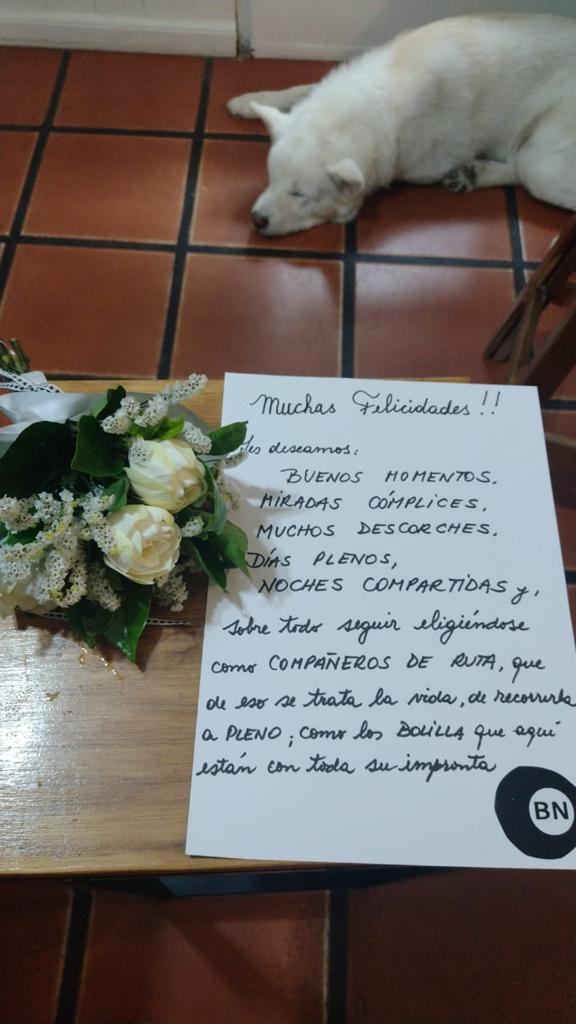 Muchas Felicidades!!
Les deseamos:
BUENOS MOMENTOS,
MIRADAS CÓMPLICES,
MUCHOS DESCORCHES,
DÍAS PLENOS,
NOCHES COMPARTIDAS y,
sobre todo seguir eligiéndose
como COMPAÑEROS DE RUTA, que
de eso se trata la vida, de recorrerla
a PLENO; como los BOLILLA que aquí
están con toda su impronta
BN